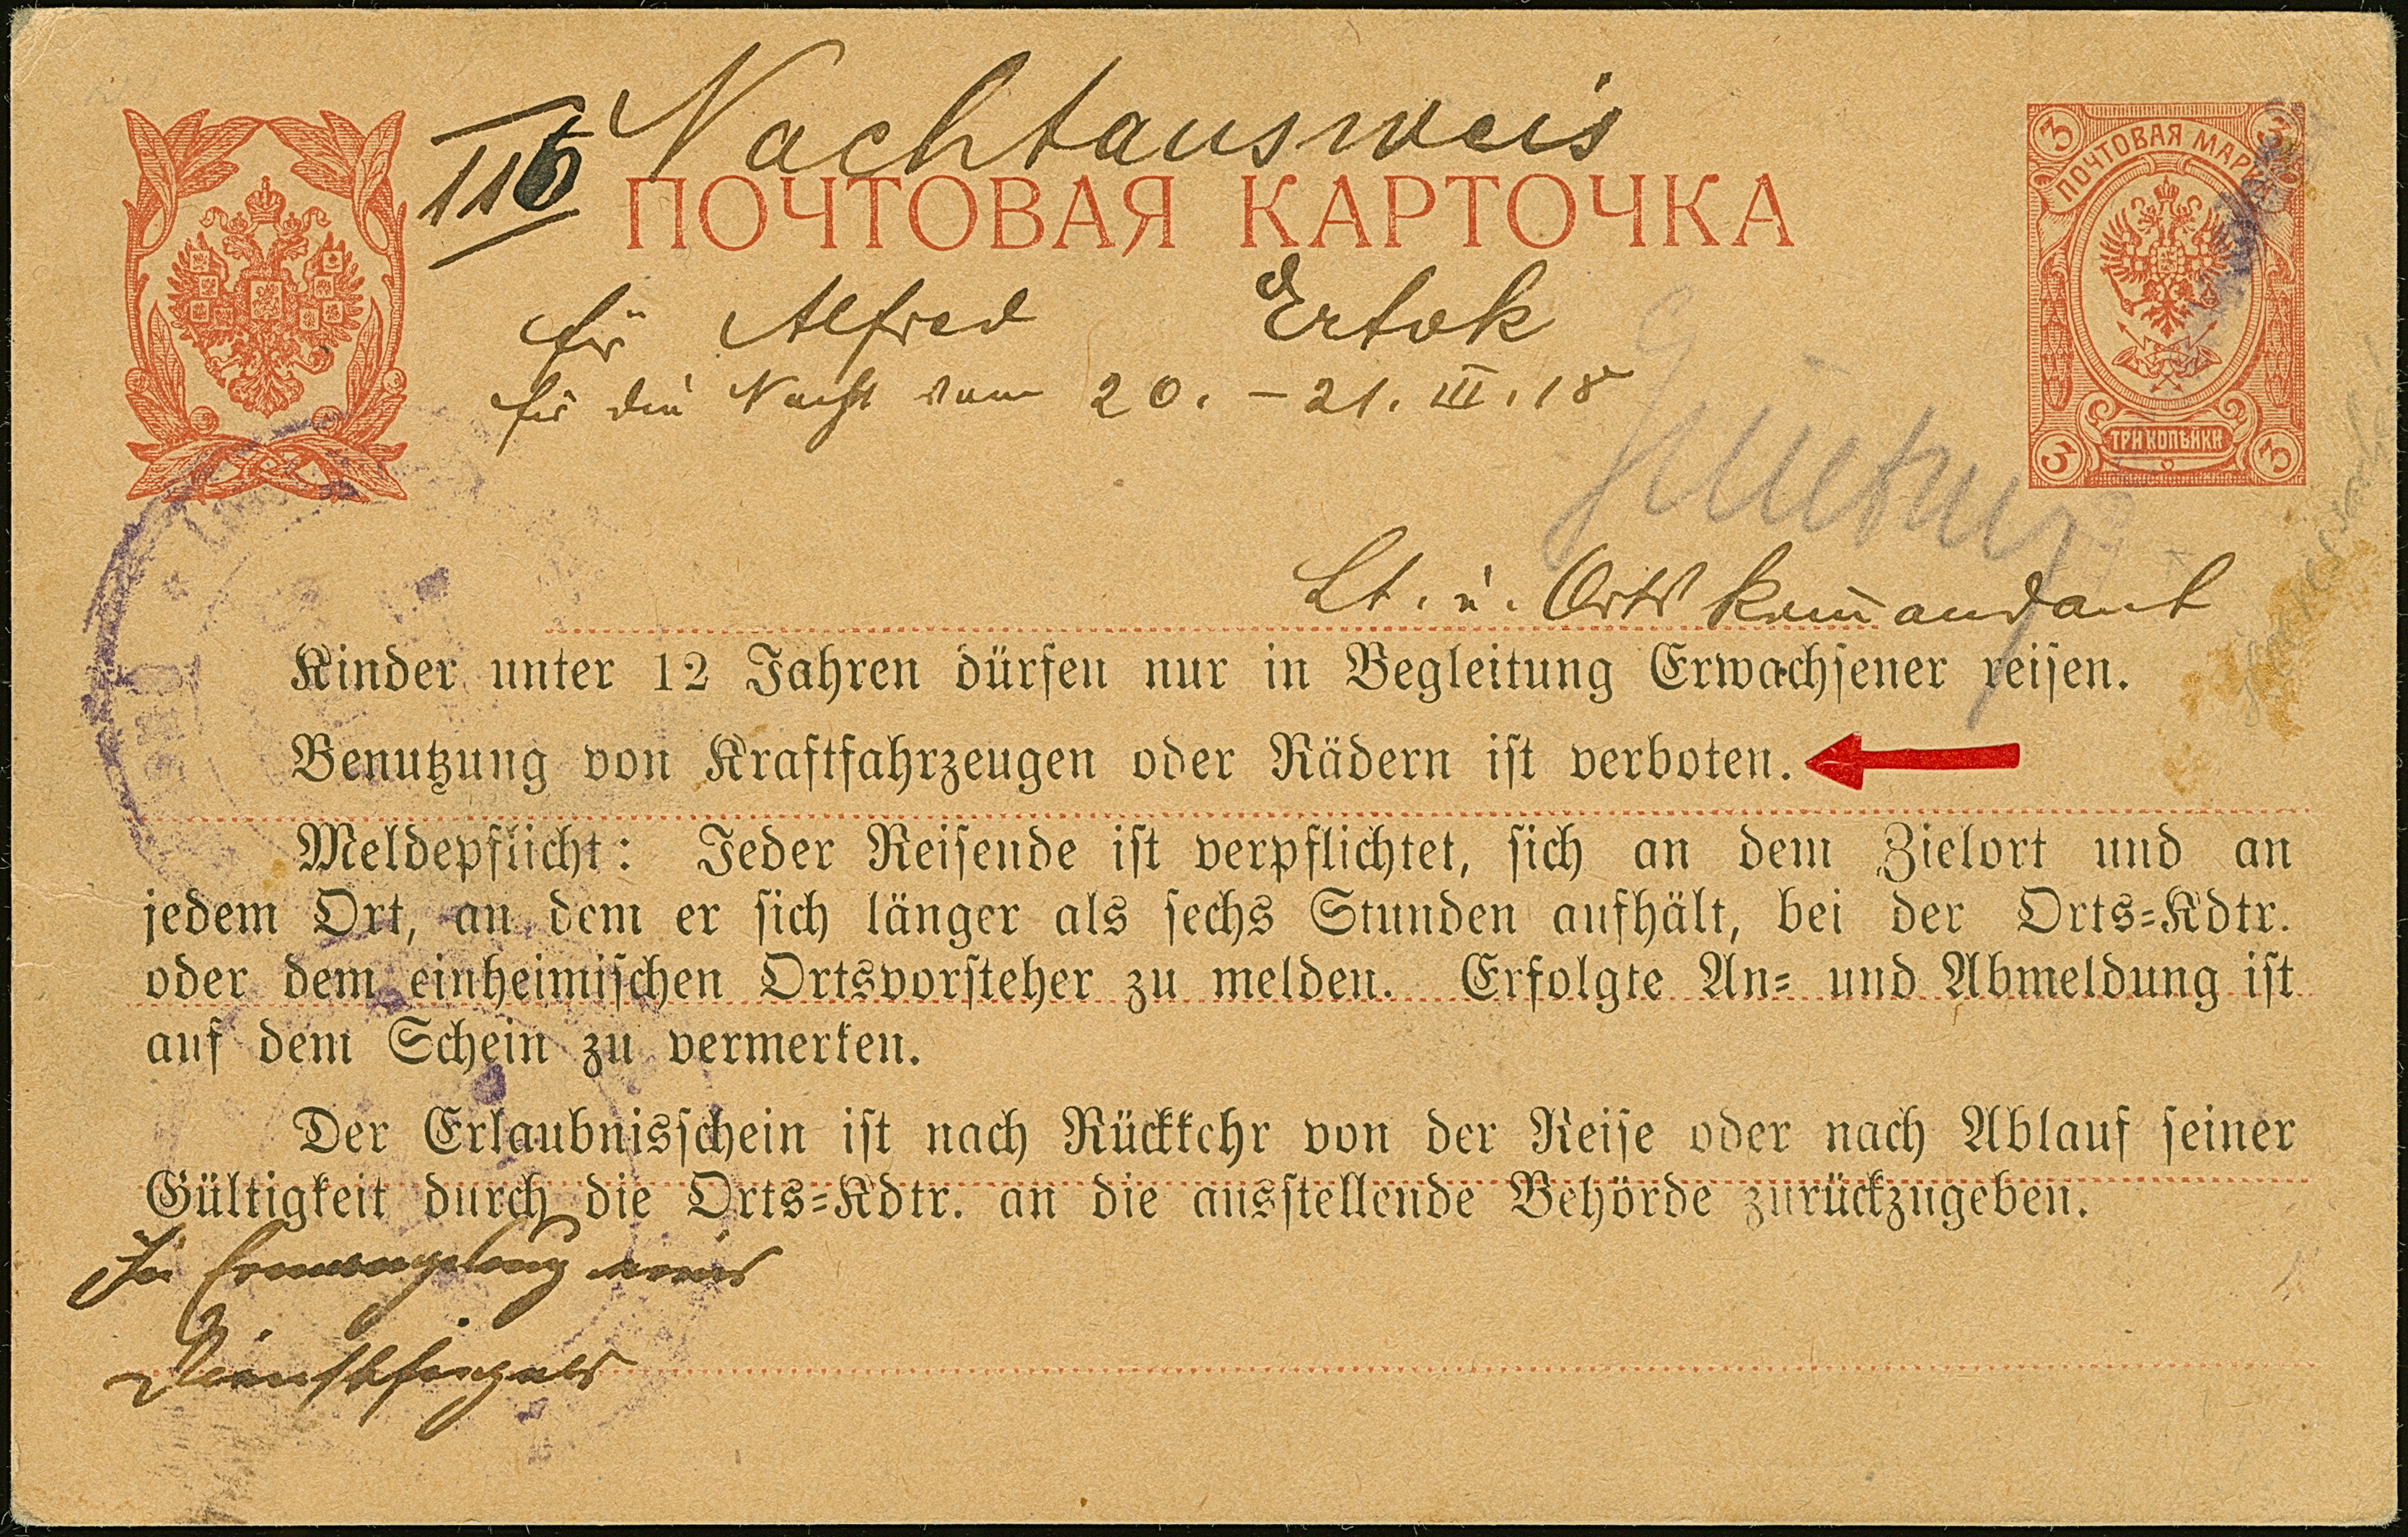 Nachtausweis
116
ПОЧТОВАЯ КАРТОЧКА
3 ПОЧТОВАЯ МАРКА 3
für Alfred Ertok
für die Nacht vom 20. - 21. III. 18
3 ТРИ КОПѢЙКИ 3
Lt. u. Ortskom̄andant
Kinder unter 12 Jahren dürfen nur in Begleitung Erwachsener reisen.
Benutzung von Kraftfahrzeugen oder Rädern ist verboten.
Meldepflicht: Jeder Reisende ist verpflichtet, sich an dem Zielort und an
jedem Ort, an dem er sich länger als sechs Stunden aufhält, bei der Orts=Kdtr.
oder dem einheimischen Ortsvorsteher zu melden. Erfolgte An= und Abmeldung ist
auf dem Schein zu vermerken.
Der Erlaubnisschein ist nach Rückkehr von der Reise oder nach Ablauf seiner
Gültigkeit durch die Orts=Kdtr. an die ausstellende Behörde zurückzugeben.
In Ermangelung eines
Dienstsiegels